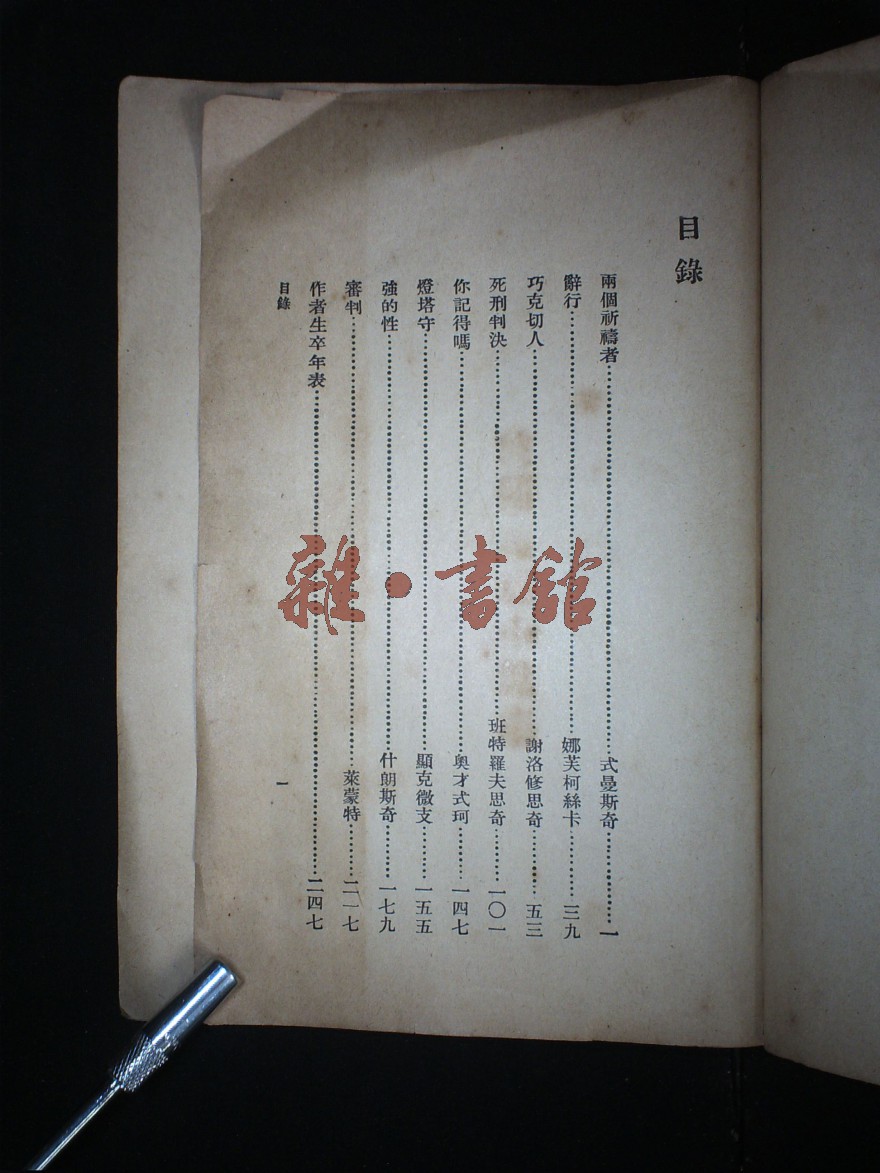 目錄
兩個祈禱者……式曼斯奇……一
辭行……娜芙柯絲卡……三九
巧克切人……謝洛修思奇……五三
死刑判決……班特羅夫思奇……一〇一
你記得嗎……奧才式珂……一四七
燈塔守……顯克微支……一五五
強的性……什朗斯奇……一七九
審判……萊蒙特……二一七
作者生卒年表……二四七
目錄
一
雜·書館